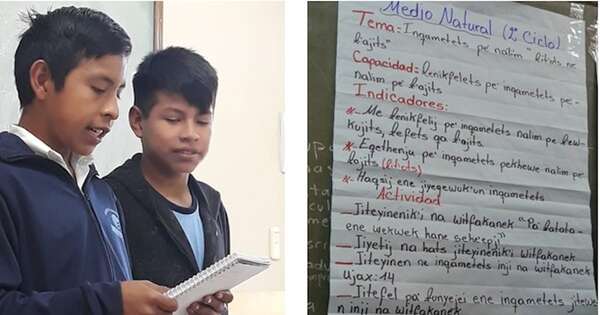 Medio Natural (2º Ciclo)
Tema= Ingametets pe' nalim "
bajits"
Capacidad= kenikfelets pe' ingametets pe-
nalim pe' bajits
Indicadores:
* Me kenikfelij pe' ingametets nalim pe' kew-
kujits, lefets qa bajits.
* Eqethenju pe' ingametets pekhewe nalim pe'
bajits (litots)
* Haqsij ene jiyeqewuk'un ingametets
Actividad
_ Jiteyinenik'i na witfakanek "Pa' batata-
ene wekwek hane seheepji"
_ Jiyetij na hats jiteyinenik'i witfakanek
_ Jiteyinen ne ingametets inji na witfakanek
Ujax: 14
_ Jitefel pa' funyejei ene ingametets jitewe
n inji na witfakanek